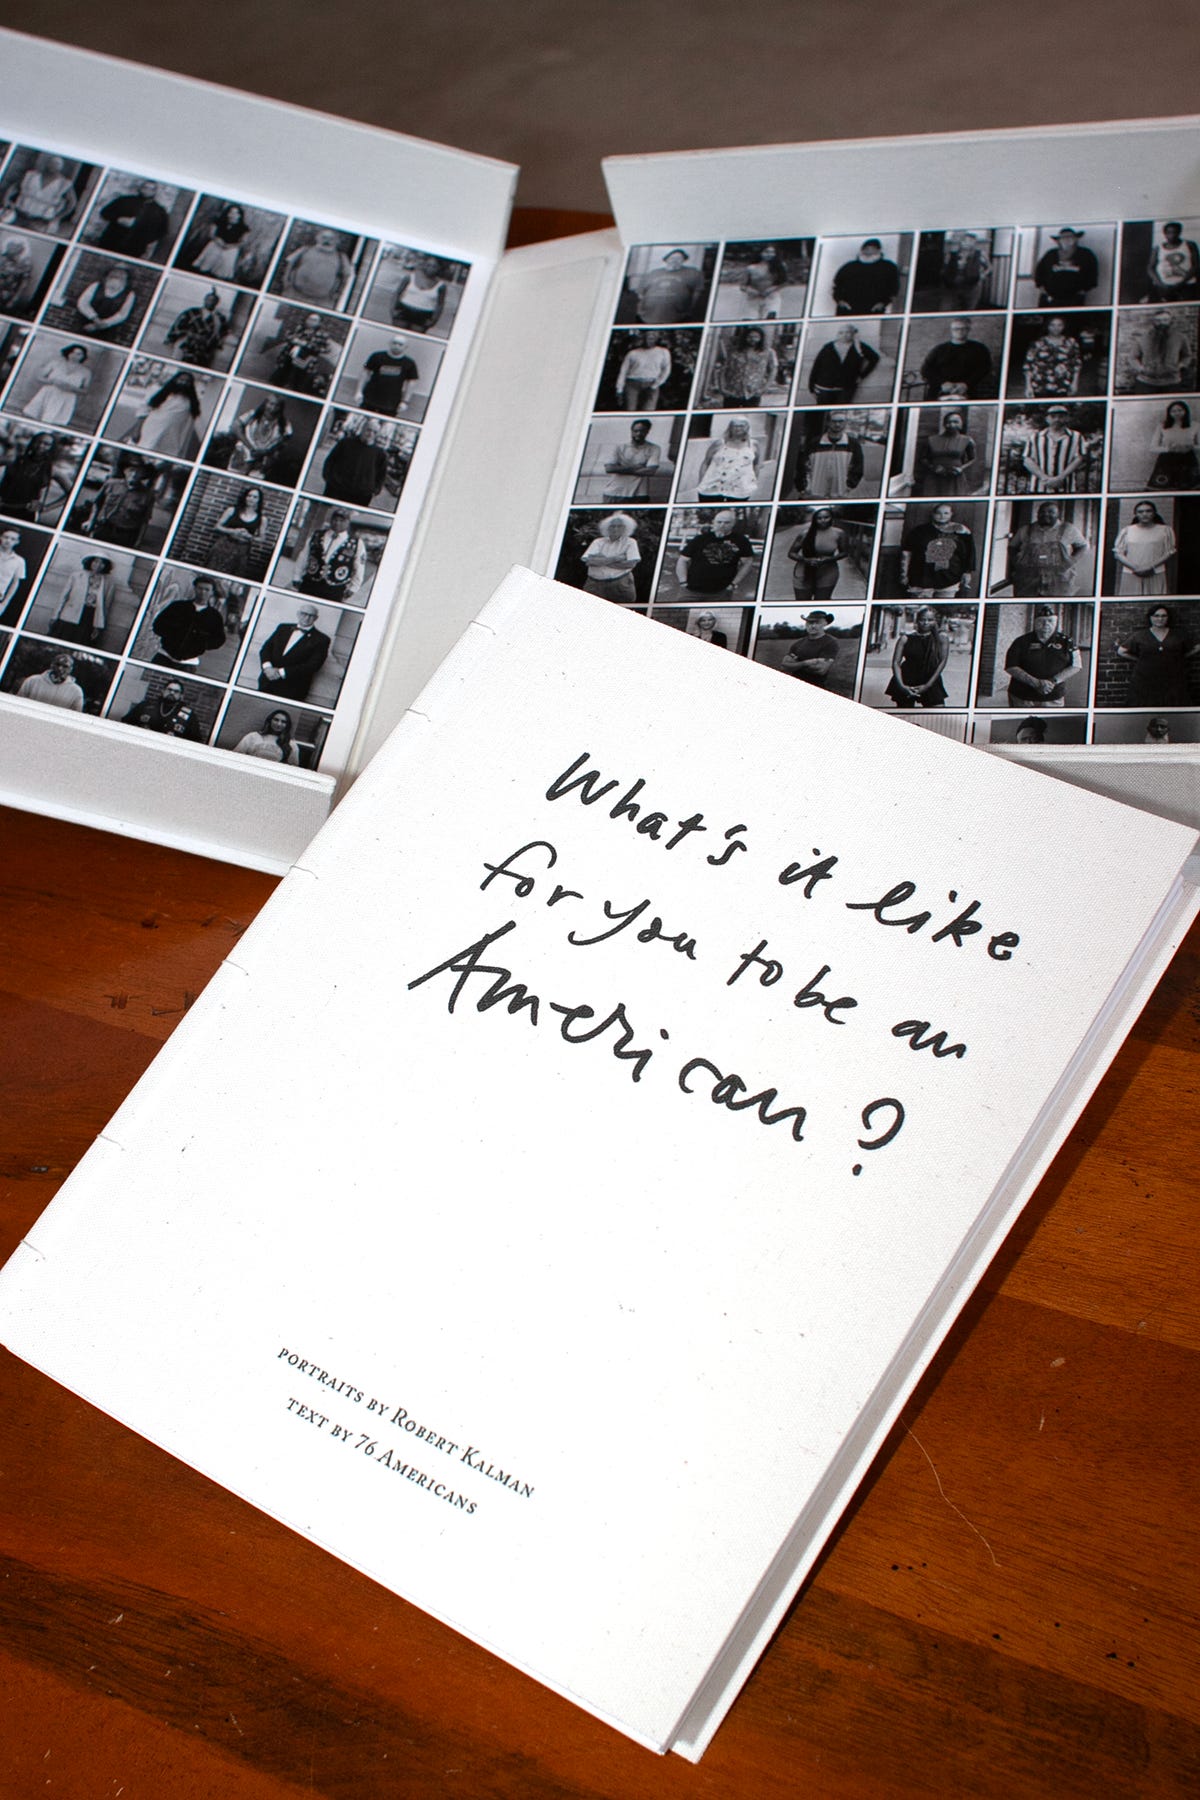 What's it like
for you to be an
American?
PORTRAITS BY ROBERT KALMAN
TEXT BY 76 AMERICANS